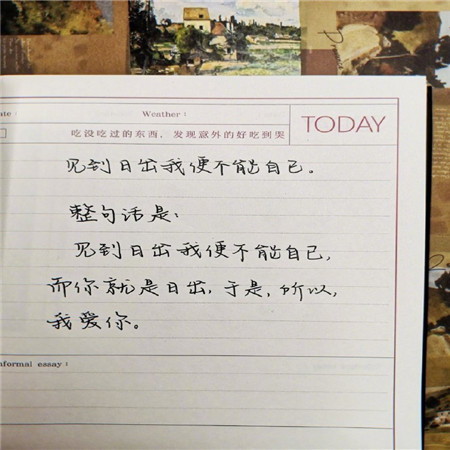 ate：
Weather：
吃没吃过的东西，发现意外的好吃到哭
TODAY
见到日出我便不能自已。
整句话是：
见到日出我便不能自已，
而你就是日出，于是，所以，
我爱你。
nformal essay：